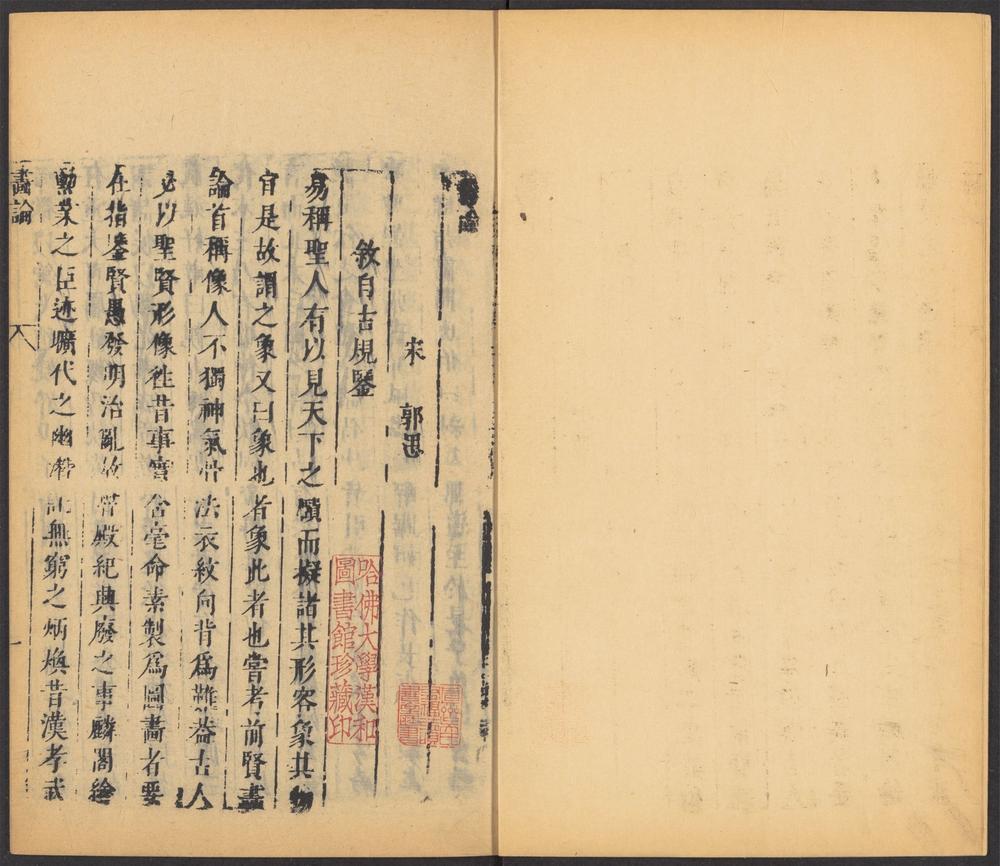 論
宋 郭思
敘自古規鑒
易稱聖人有以見天下之賾而擬諸其形容象其物
宜是故謂之象又曰象也者象此者也嘗考前賢畫
論首稱像人不獨神氣骨法衣紋向背爲難葢古人
必以聖賢形像徃昔事實含毫命素製爲圖畫者要
在指鑒賢愚發明治亂故魯殿紀興廢之事麟閣繪
勳業之臣迹壙代之幽潛託無窮之炳煥昔漢孝武
畫論
八
一
哈佛大學漢和
圖書館珍藏印